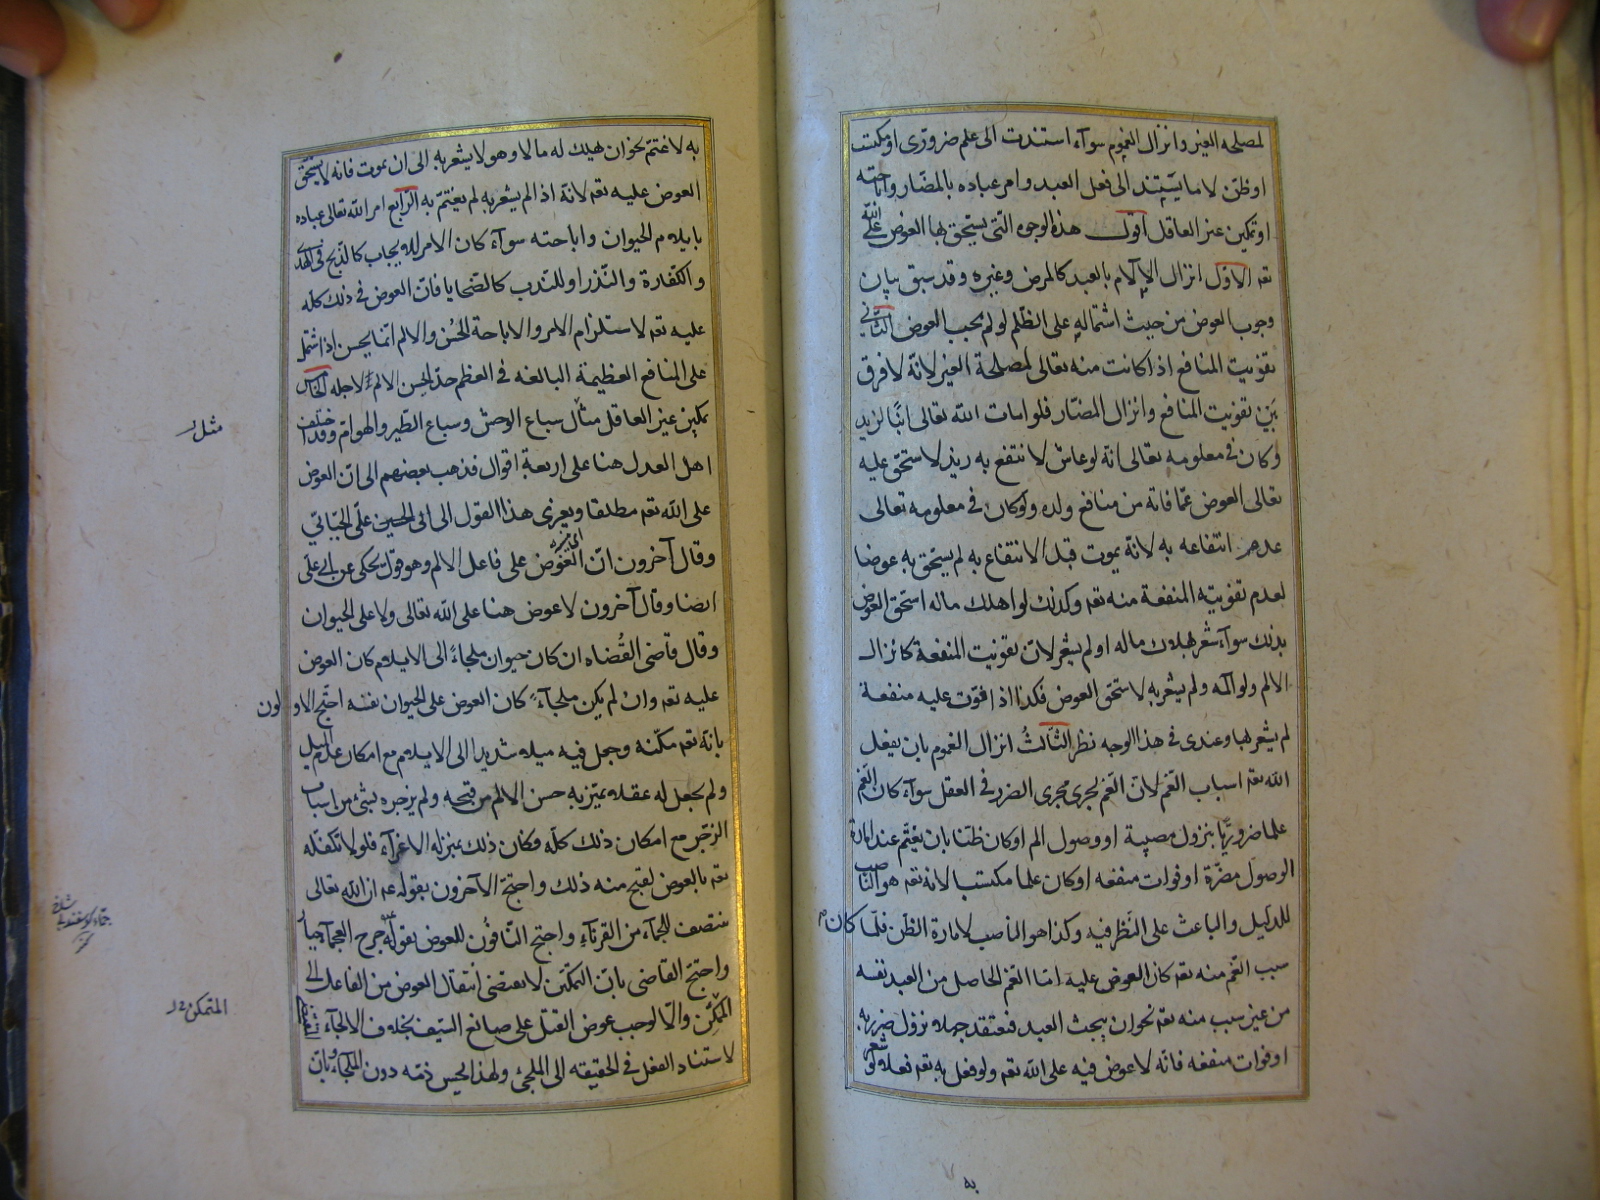 لمصلحه الغير وانزال الغموم سوآء استندت الى علم ضرورى او مكتسب
او ظنّ لا ما يستند الى فعل العبد وامر عباده بالمضّار واباحته
او تمكين غير العاقل اقول هذه الوجوه التى يستحق بها العوض على الله
تعه الاوّل انزال الآلام بالعبد كالمرض وغيره وقد سبق بيان
وجوب العوض من حيث اشتماله على الظلم لو لم يجب العوض الثانى
تفويت المنافع اذا كانت منه تعالى لمصلحة الغير لانّه لا فرق
بين تفويت المنافع وانزال المضّار فلو امات الله تعالى ابنًا لزيد
وكان فى معلومه تعالى انّه لو عاش لانتفع به زيد لاستحق عليه
تعالى العوض عمّا فاته من منافع ولده ولو كان فى معلومه تعالى
عدم انتفاعه به لانّه يموت قبل الانتفاع به لم يستحق به عوضا
لعدم تفويته المنفعة منه تعه وكذلك لو اهلك ماله استحق العوض
بذلك سوآء شعر بهلاك ماله او لم يشعر لانّ تفويت المنفعة كانزال
الالم ولو آلمه ولم يشعر به لاستحق العوض فكذا اذا فوّت عليه منفعة
لم يشعر بها وعندى فى هذا الوجه نظر الثالث انزال الغموم بان يفعل
الله تعه اسباب الغّم لانّ الغّم يجرى مجرى الضرر فى العقل سوآء كان الغّم
علما ضروريّا بنزول مصيبة او وصول الم او كان ظنّا بان يغتّم عند امارة
الوصول مضرّة او فوات منفعه او كان علما مكتسبا لانه تعه هو الناصب
للدليل والباعث على النّظر فيه وكذا هو الناصب لامارة الظنّ فلمّا كان
سبب الغّم منه تعه كان العوض عليه امّا الغّم الحاصل من العبد نفسه
من غير سبب منه تعه نحو ان يبحث العبد فيعتقد جهلا نزول ضرر به
او فوات منفعه فانّه لا عوض فيه على الله تعه ولو فعل به تعه فعلا لو شعر
به
به لاغتمّ نحو ان يهلك له مالا وهو لا يشعر به الى ان يموت فانه لا يستحّق
العوض عليه تعه لانّه اذا لم يشعر به لم يغتمّ به الرّابع امر الله تعالى عباده
بايلام الحيوان واباحته سوآء كان الامر للايجاب كالذّبح فى الهدى
والكفّارة والنّذر او للندب كالضّحايا فانّ العوض فى ذلك كلّه
عليه تعه لاستلزام الامر والاباحة الحُسن والالم انّما يحسن اذا اشتمل
على المنافع العظيمة البالغه فى العظم حدّا يحسن الالم لاجله الخامس
تمكين غير العاقل مثال سباع الوحش وسباع الطّير والهوامّ وقد اختلف
مثل
اهل العدل هنا على اربعة اقوال فذهب بعضهم الى انّ العوض
على الله تعه مطلقا ويعزى هذا القول الى ابى الحسين على الجبّائىّ
وقال آخرون انّ العوض على فاعل الالم وهو قول يحكى عن ابى على
ايضا وقال آخرون لا عوض هنا على الله تعالى ولا على الحيوان
وقال قاضى القُضاه ان كان حيوان ملجاءً الى الايلام كان العوض
عليه تعه وان لم يكن ملجآءً كان العوض على الحيوان نفسه احتج الاولون
بانّه تعه مكّنه وجعل فيه ميلا شديدا الى الايلام مع امكان عدم الميل
ولم يجعل له عقلا يميّز به حسن الالم من قبيحه ولم يزجره بشئ من اسباب
الزجّر مع امكان ذلك كلّه وكان ذلك بمنزله الاغرآء فلو لا تكفّله
تعه بالعوض لقبح منه ذلك واحتجّ الآخرون بقوله عم ان الله تعالى
ينتصف للجمّآء من القرنآء واحتج النّافون للعوض بقوله جرح العجمآء جبار
واحتجّ القاضى بانّ التمكّين لا يقتضى انتقال العوض من الفاعل الى
الممكّن والّا لوجب عوض القتل على صانع السّيف بخلاف الالجآء
المتمكن
لاستناد الفعل فى الحقيقه الى الملجئ ولهذا يحسن ذمّه دون الملجاء وبانّ